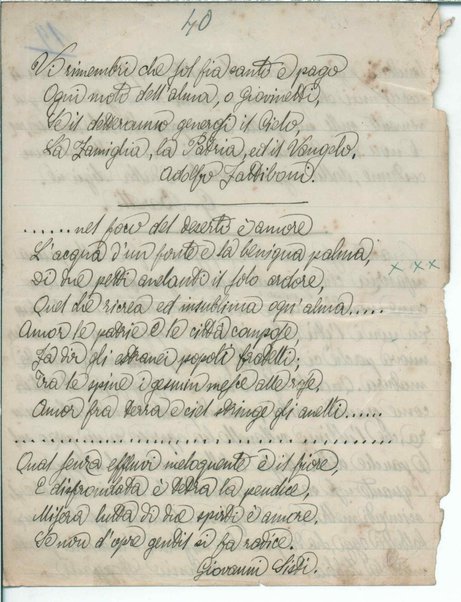 40
Vi rimembri che sol fia santo e pago
Ogni moto dell'alma, o Giovinetti,
Se il detteranno genergi il Cielo,
La Famiglia, la Patria, ed il Vangelo.
Adolfo Zattiboni.
......nel foco del deserto è amore
L'acqua d'un fonte e la benigna palma,
Di due petti anelanti il solo ardore,
Quel che ricrea ed insublima ogn'alma.....
Amor le patrie e le città compose,
Fa dir gli estranei popoli fratelli;
Tra le spine i gesmin mesce alle rose,
Amor fra terra e ciel stringe gli anelli.....
x xx
Qual senza effluvi ineloquente è il fiore,
E disfrondata è tetra la pendice,
Misera lutta di due spirti è amore,
Se non d'opre gentil si fa radice.
Giovanni